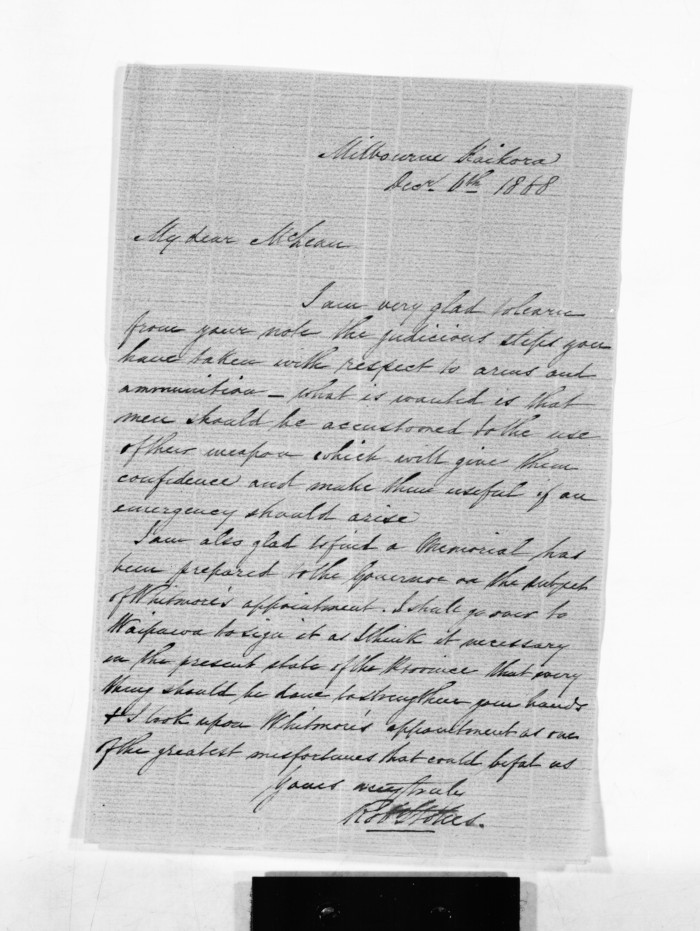 Milbourne Kaikora
Decr. 6th 1868
My dear McLean
I am very glad to learn
from your note the judicious steps you
have taken with respect to arms and
ammunition - what is wanted is that
men should be accustomed to the use
of their weapon which will give them
confidence and make them useful if an
emergency should arise
I am also glad to find a Memorial has
been prepared to the Governor on the subject
of Whitmore's appointment. I shall go over to
Waipawa to sign it as I think it necessary
in the present state of the Province that every-
thing should be done to strengthen your hands
& I look upon Whitmore's appointment as one
of the greatest misfortunes that could befal us
Yours very truly
Robt Stokes.